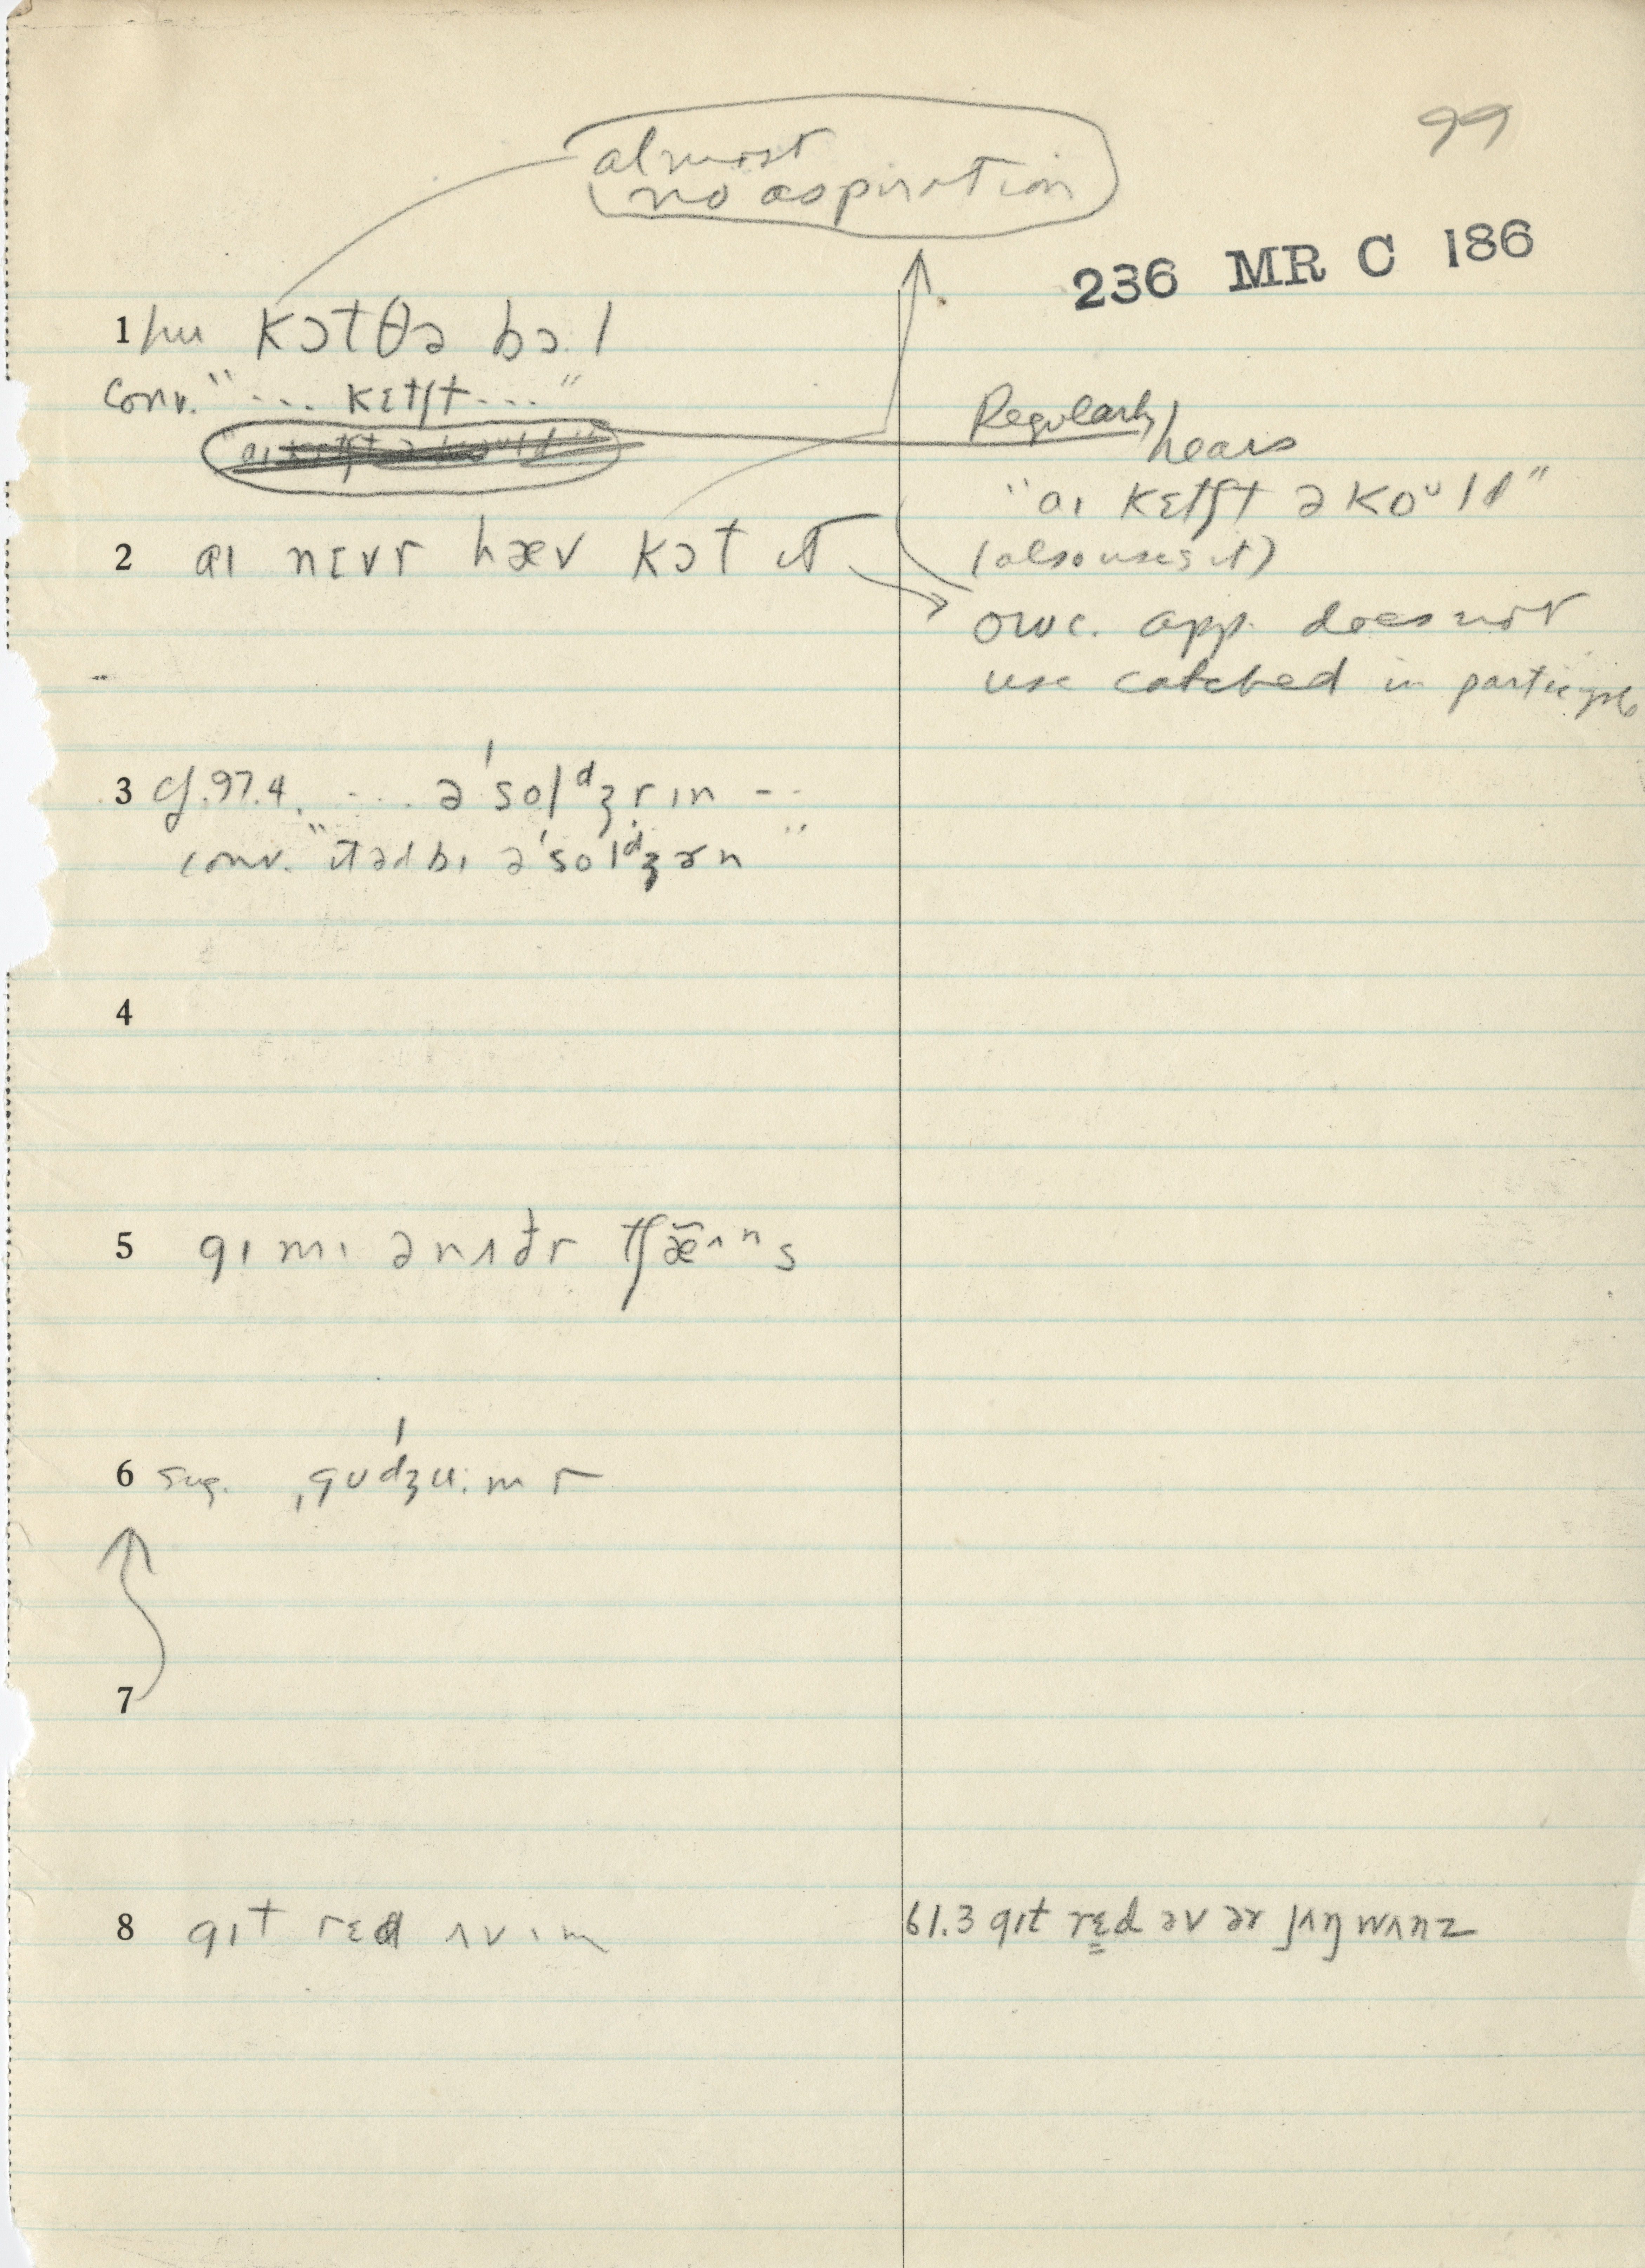 99
almost
no aspiration
236 MR C 186
1 hu kɔtθə bɔ.l
conv. "... kɛtʃt ...."
"aɪ kɛtʃt ə koᵘld"
2 aɪ nɛvr hæv kɔt ɪt
Regularly
hears
"aɪ kɛtʃt ə koᵘld"
(also uses it)
owc. app. does not
use catched in participle
3 cf. 97.4. .... ə'solᵈʒrɪn --
conv. "ɪtədbɪ ə'solᵈʒɚn"
4
5 gɪ mɪ ənʌðr tʃæ̃ᴧⁿs
6 sug. ˌgʊ'dʒu.mr
7
8 gɪt rɛd ʌvɪm
61.3 gɪt rɛd əv ər jʌŋ wʌnz